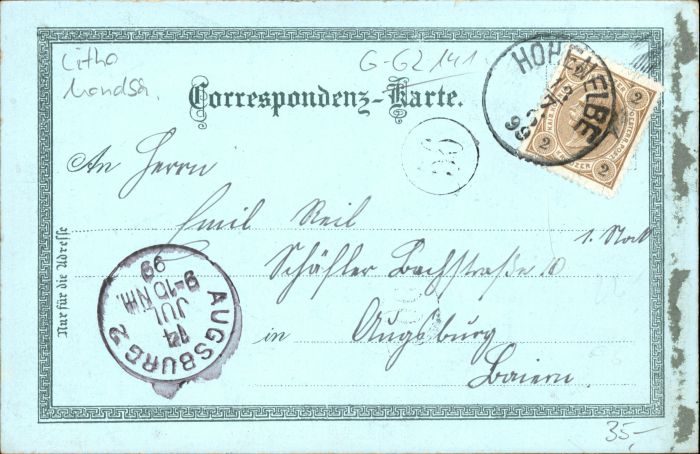 Litho
G-GZ 141
Mondsch.
Correspondenz-Karte.
HOHENELBE
13
7
99
2
2
2
KREUZER
36
An Herrn
Emil Keil
1. Stock
Schäfler Bachstraße 10
in Augsburg
Baiern.
Nur für die Adresse
AUGSBURG 2
14
JUL
9-10 Nm.
99
35,-